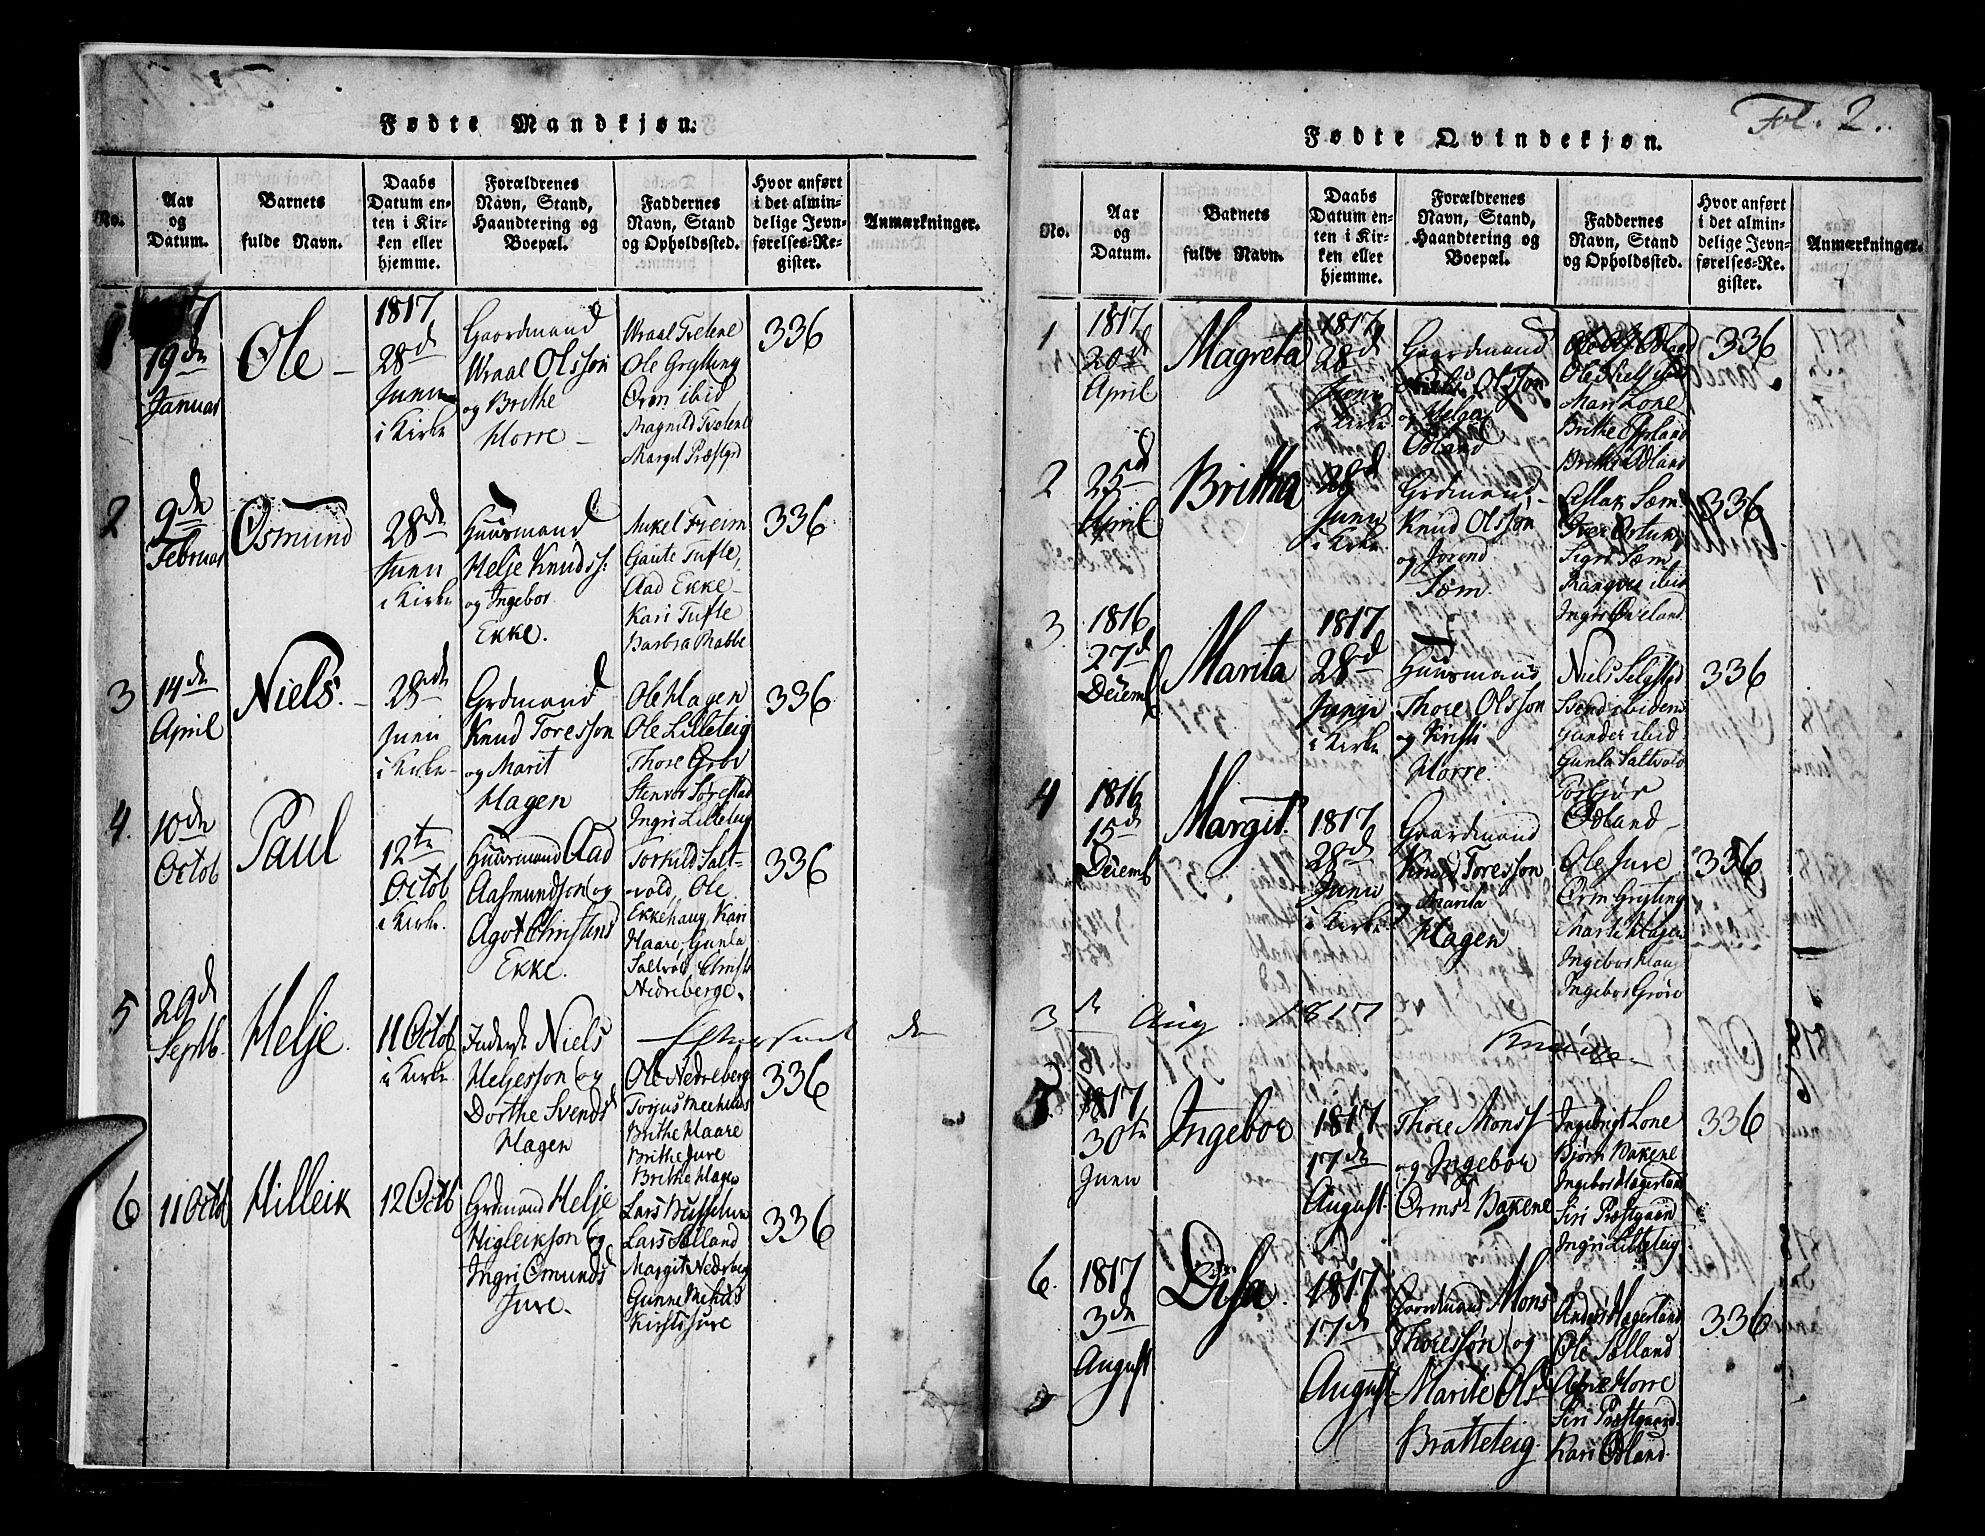 Fødte Mandkjøn.
No.
Aar
og
Datum.
Barnets
fulde Navn.
Daabs
Datum en-
ten i Kir-
ken eller
hjemme.
Forældrenes
Navn, Stand,
Haandtering og
Boepæl.
Faddernes
Navn, Stand
og Opholdssted.
Hvor anført
i det almin-
delige Jevn-
førelses-Re-
gister.
Anmærkninger.
1
19de
Januar
Ole
1817
28d
Junii
i Kirke
Gaardmand
Wraal Olsson
og Brithe
Horre
Wraal Tvetene
Ole Grytting
Orm ibid
Magnild Tvetene
Margit Præstgrd
336
2
2den
Februar
Osmund
28de
Junii
i Kirke
Huusmand
Helje Knuds:
og Ingebor
Ekke.
Ankel Treim
Gaute Tufte,
Aad Ekke
Kari Tufte
Barbra Rabbe
336
3
14de
April
Niels.
28de
Junii
i Kirke
Grdmand
Knud Toresson
og Marit
Hagen
Ole Hagen
Ole Lilleteig
Thore Grov
Stenvor Sørestad
Ingri Lilleteig
336
4.
10de
Octob
Paul
12te
Octob
i Kirke.
Huusmand Aad
Aasmundson og
Agot Christens
Ekke.
Torkild Salt-
vold, Ole
Ekkehaug, Kari
Haare, Gunla
Saltvold, Christi
Nedreberge.
336
5
29d
Septb.
Helje.
11 Octob
i Kirke
Inderst Niels
Heljesson og
Dorthe Svends
Hagen
Ole Nedreberg
Torjus Meehuus
Brithe Haare
Brithe Jure
Brithe Hagen
336
6
11 Octob
Hilleik
12 Octb
Grdmand Helje
Higleikson og
Ingri Omunds
Jure.
Lars Sælland
Margit Nedreberg
Gunne Mehuus
Kirsti Jure
336
Fol. 2.
Fødte Qvindekjøn.
No.
Aar
og
Datum.
Barnets
fulde Navn.
Daabs
Datum en-
ten i Kir-
ken eller
hjemme.
Forældrenes
Navn, Stand,
Haandtering og
Boepæl.
Faddernes
Navn, Stand
og Opholdssted.
Hvor anført
i det almin-
delige Jevn-
førelses-Re-
gister.
Anmærkninger.
1
1817
20d
April
Magreta
1817
28d
Junii
i Kirke
Gaardmand
Niels Olsson
og Helga
Odland
Mari Lone
Brithe Odland
336
2
25d
April
Britha
28d
Junii
i Kirke
Grdmand
Knud Olsson
og Jorend
Sæm.
Aslak Sæm
Sigri Sæm
Rangvei ibid
336
3
1816
27d
Decemb
Marita
1817
28d
Junii
i Kirke
Huusmand
Thore Olsson
og Kristi
Horre.
Niels Selestad
Svend ibidem
Gunder ibid
Gunla Saltvold
Torbjør
Odland
336
4
1816
15de
Decemb
Margit.
1817
28de
Junii
i Kirke
Gaardmand
Knud Toresson
og Marita
Hagen
Ole Jure
Orm Grytting
Marte Hagen
Ingebor Haug
Ingebor Grøve
336
3 d Aug. 1817
5.
1817
30te
Junii
Ingebor
1817
17de
August.
Thore Mons
og Ingebor
Ormsd Bakene
Ingebrigt Lone
Bjørn Bakene
Ingebor Hægerland
Siri Præstgaard
Ingri Lilleteig
336
6.
1817
3de
August
Disa.
1817
17d
August
Gaardmand Mons
Thoresson og
Marite Olsd
Bratteteig.
Anders Hægerland
Ole Sælland
Horre
Siri Præstgaard.
Kari Odland.
336